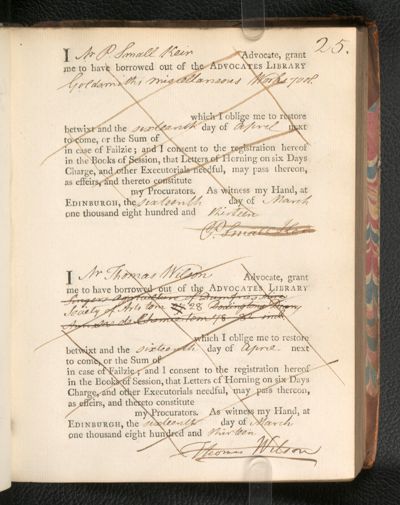 25.
I Mr P. Small Keir Advocate, grant
me to have borrowed out of the ADVOCATES LIBRARY
Goldsmith's miscellaneous Works
which I oblige me to restore
betwixt and the sixteenth day of April next
to come, or the Sum of
in case of Failzie; and I consent to the registration hereof
in the Books of Session, that Letters of Horning on six Days
Charge, and other Executorials needful, may pass thereon,
as effeirs, and thereto constitute
my Procurators. As witness my Hand, at
EDINBURGH, the sixteenth day of March
one thousand eight hundred and thirteen
P. Small Keir
I Mr Thomas Wilson Advocate, grant
me to have borrowed out of the ADVOCATES LIBRARY
of Dumfries shire
Society of Arts tom 28
Annales de Chimie tom 78
which I oblige me to restore
betwixt and the sixteenth day of April next
to come, or the Sum of
in case of Failzie; and I consent to the registration hereof
in the Books of Session, that Letters of Horning on six Days
Charge, and other Executorials needful, may pass thereon,
as effeirs, and thereto constitute
my Procurators. As witness my Hand, at
EDINBURGH, the sixteenth day of March
one thousand eight hundred and thirteen
Thomas Wilson